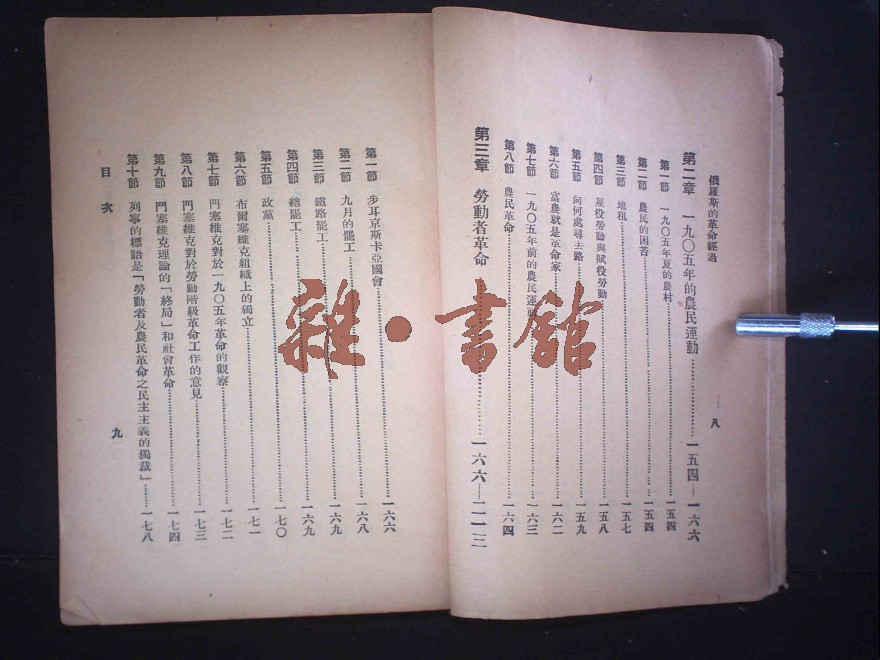 俄羅斯的革命經過
第二章 一九〇五年的農民運動…………一五四—一六六
第一節 一九〇五年夏的農村…………一五四
第二節 農民的困苦…………一五四
第三節 地租…………一五七
第四節 雇役勞動與賦役勞動…………一五八
第五節 向何處尋去路…………一五九
第六節 富農就是革命家…………一六二
第七節 一九〇五年前的農民運動…………一六三
第八節 農民革命…………一六四
第三章 勞動者革命…………一六六—二一三
八
第一節 步耳京斯卡亞國會…………一六六
第二節 九月的罷工…………一六八
第三節 鐵路罷工…………一六九
第四節 總罷工…………一六九
第五節 政黨…………一七〇
第六節 布爾塞維克組織上的獨立…………一七一
第七節 門塞維克對於一九〇五年革命的觀察…………一七二
第八節 門塞維克對於勞動階級革命工作的意見…………一七三
第九節 門塞維克理論的「終局」和社會革命…………一七四
第十節 列寧的標語是「勞動者及農民革命之民主主義的獨裁」……一七八
目次
九
雜·書館